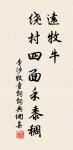 遠牧牛
繞村四面禾黍稠
李涉牧童詞詞典網集